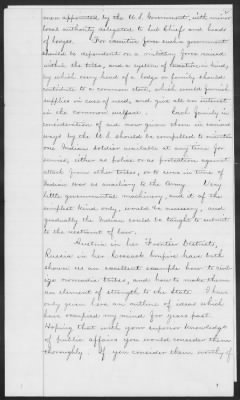 men appointed by the U.S. Government, with minor
local authority delegated to sub Chiefs and heads
of lodges. For executive force such a government
should be dependent on a military force raised
within the tribe, and a system of taxation in kind,
by which every head of a lodge or family should
contribute to a common store, which would furnish
supplies in case of need, and give all an interest
in the common support. Each family in
consideration of aid now given them in various
ways by the U.S. should be compelled to maintain
one Indian soldier available at any time for
service, either as police or as protection against
attack from other tribes, or to serve in time of
Indian War as auxiliary to the Army. Very
little governmental machinery, and it of the
simplest kind only, would be necessary, and
gradually the Indians could be taught to submit
to the restraint of law.
Austria in her Frontier Districts,
Russia in her Cossack Empire have both
shown us an excellent example how to civil-
ize nomadic tribes, and how to make them
an element of strength to the State. I have
only given here an outline of ideas which
have occupied my mind for years past.
Hoping that with your superior knowledge
of public affairs you would consider them
thoroughly. If you consider them worthy of